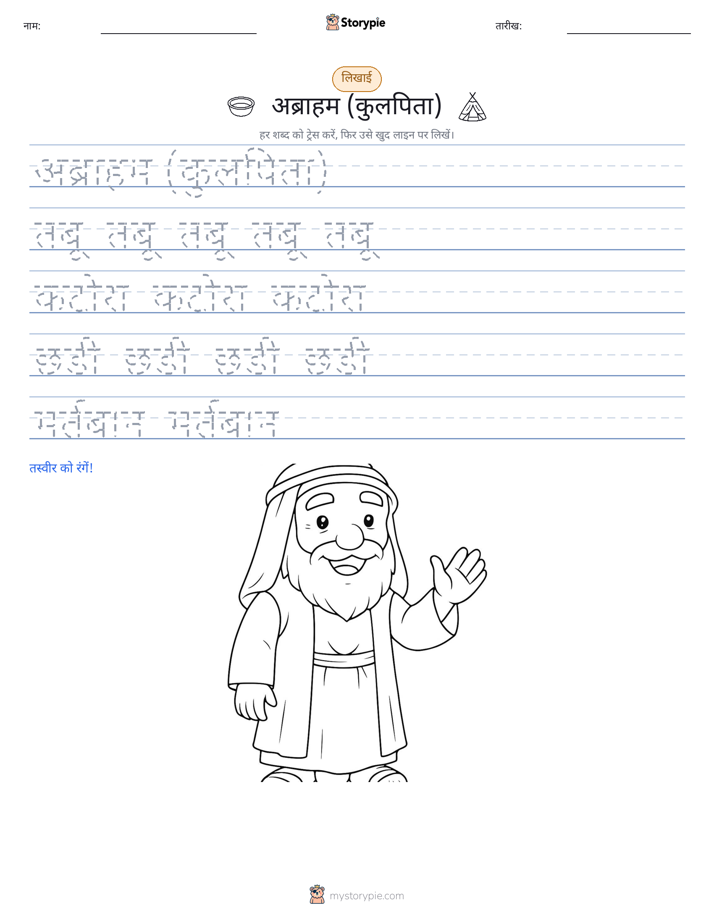 नाम:
Storypie
तारीख:
लिखाई
अब्राहम (कुलपिता)
हर शब्द को ट्रेस करें, फिर उसे खुद लाइन पर लिखें।
अब्राहम (कुलपिता)
तंबू तंबू तंबू तंबू तंबू
कटोरा कटोरा कटोरा
छड़ी छड़ी छड़ी छड़ी
मर्तबान मर्तबान
तस्वीर को रंगें!
mystorypie.com